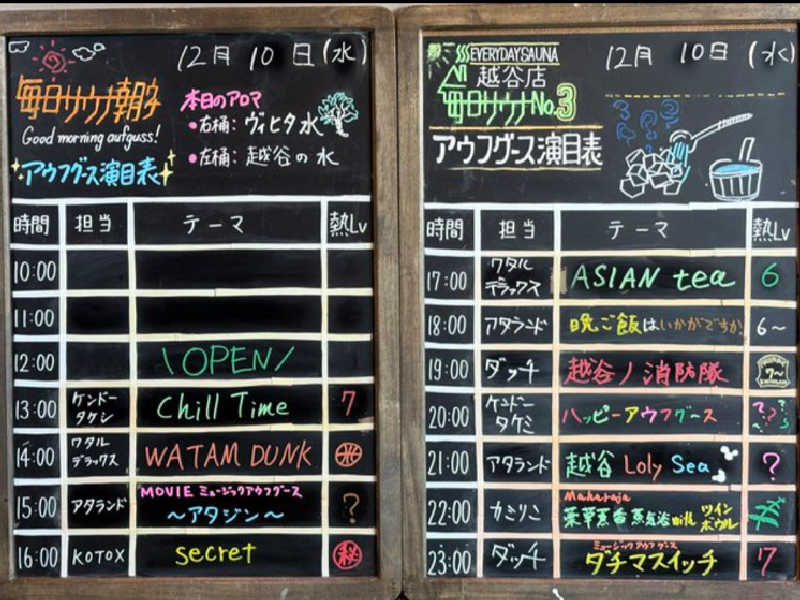 12月 10日(水)
毎日サウナ朝夕
Good morning aufguss!
アウフグース演目表
本日のアロマ
•右桶: ヴィヒタ水
•左桶: 越谷の水
時間 担当 テーマ 熱Lv
10:00
11:00
12:00 \OPEN/
13:00 ケンドータケシ Chill Time 7
14:00 ワタルデラックス WATAM DUNK
15:00 アタランド MOVIE ミュージックアウフグース ～アタジン～ ?
16:00 KOTOX secret 秘
EVERYDAY SAUNA 12月 10日(水)
越谷店
毎日サウナ No.3
アウフグース演目表
時間 担当 テーマ 熱Lv
17:00 ワタルデラックス ASIAN tea 6
18:00 アタランド 晩ご飯はいかがですか 6～
19:00 ダッチ 越谷ノ消防隊 7～
20:00 ケンドータケシ ハッピーアウフグース ???
21:00 アタランド 越谷 Loly Sea ?
22:00 カミりこ Maharaja 薬草蒸香蒸気浴 with ツインボウル
23:00 ダッチ ミュージックアウフグース タチマスイッチ 7